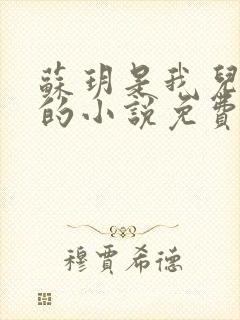 蘇玥是我兒
的小說免費
穆賈希德